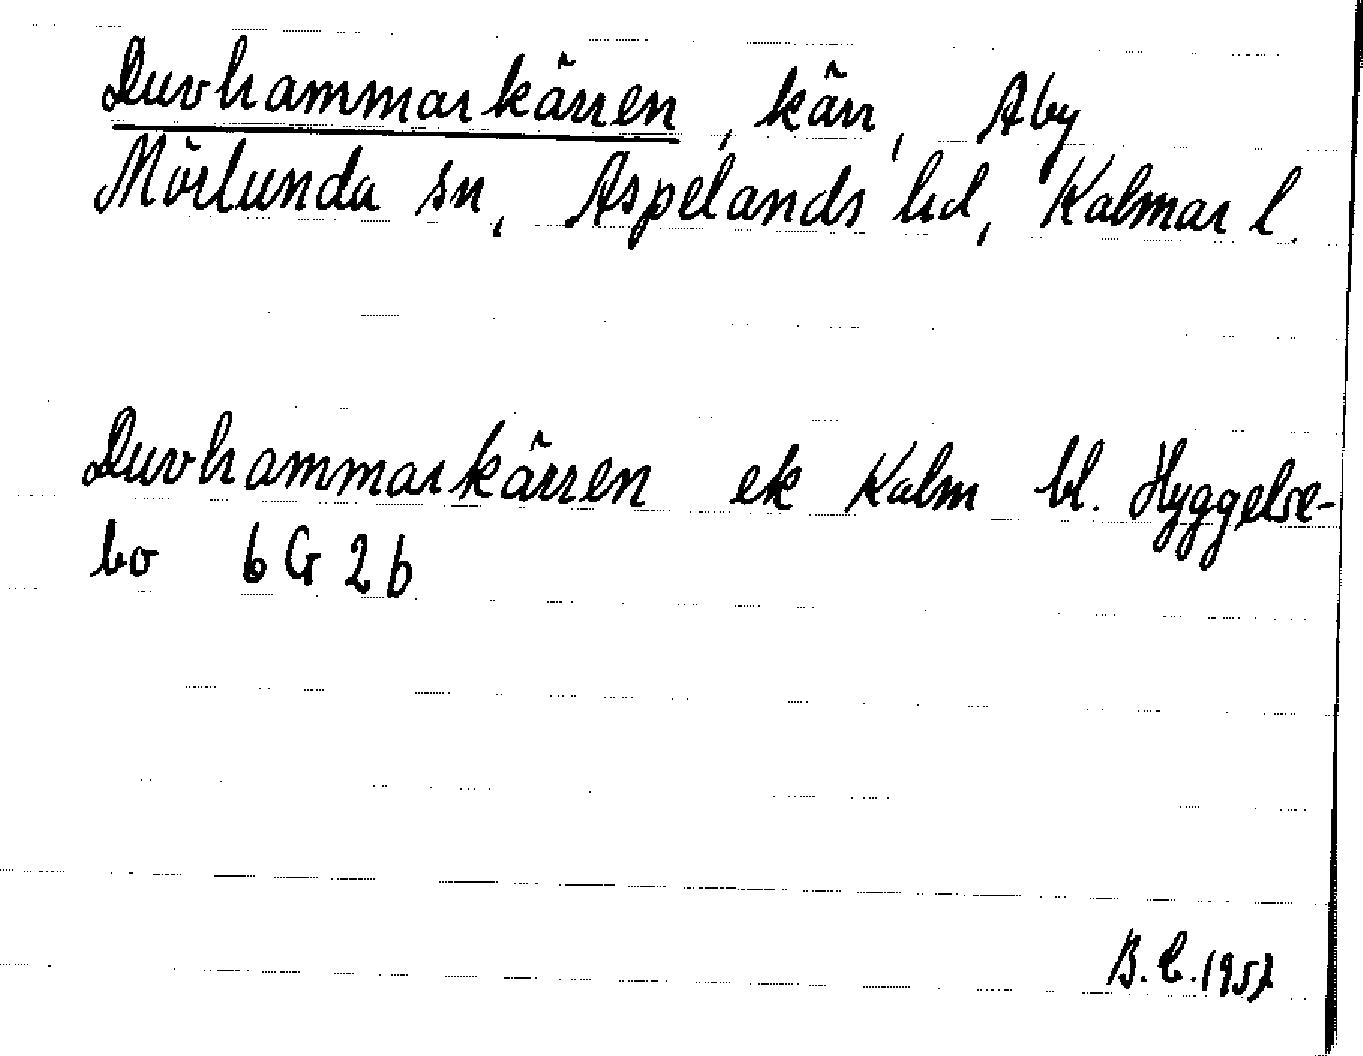 Duvhammarkärren, kärr, Åby
Mörlunda sn, Aspelands hd, Kalmar l.
Duvhammarkärren ek Kalm bl. Hyggelse-
bo 6G2b
B.C. 1957